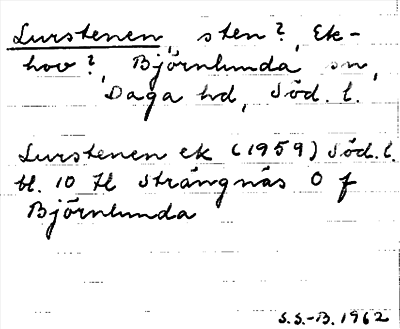 Lurstenen, sten?, Ek-
hov?, Björnlunda sn,
Daga hd, Söd. l.
Lurstenen ek (1959) Söd. l.
bl. 10 Hl Strängnäs O f
Björnlunda
S.S.-B. 1962